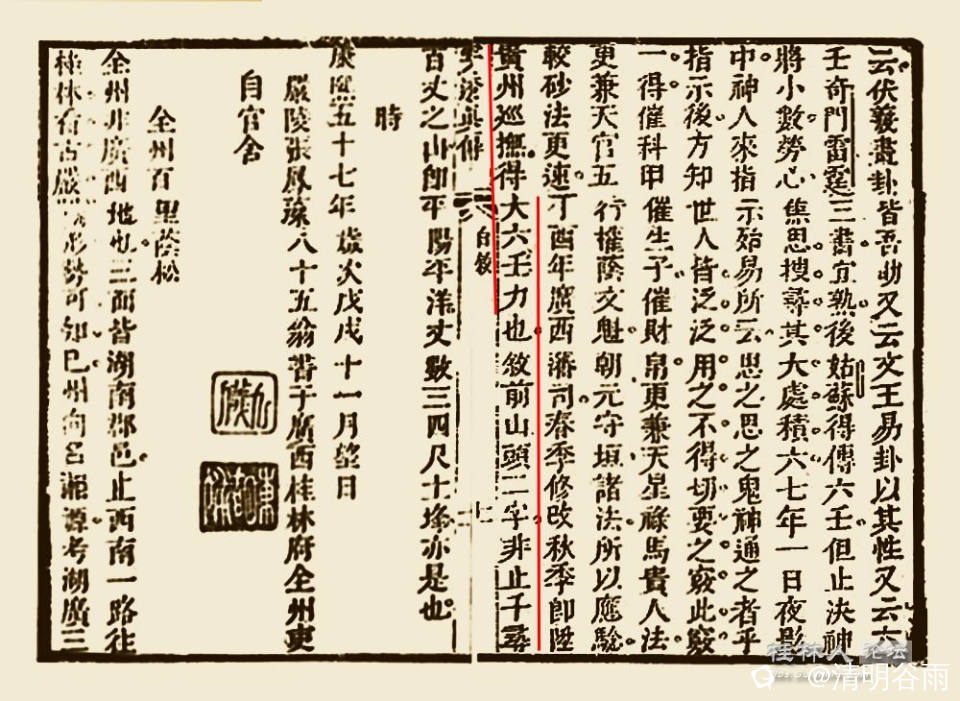 云伏羲畫卦皆吾助又云文王易卦以其性又云六
壬奇門雷霆三書宜熟後姑蘇得傳六壬但止決神
將小數勞心焦思搜尋其大處積六七年一日夜影
中神人來指示始易所云思之思之鬼神通之者乎
指示後方知世人皆泛泛用之不得切要之竅此竅
一得催科甲催生子催財帛更兼天星祿馬貴人法
更兼天官五行催蔭文魁朝元守垣諸法所以應驗
較砂法更速丁酉年廣西藩司春季修改秋季卽陞
貴州巡撫得大六壬力也敘前山頭二字非止千尋
真傳
自敘
七
百丈之山卽平陽平洋丈數三四尺土墩亦是也
時
康熙五十七年歲次戊戌十一月望日
嚴陵張鳳藻八十五翁書于廣西桂林府全州吏
自官舍
全州百里蔭松
全州非廣西地也三面皆湖南郡邑止西南一路往
桂林有古嚴形勢可知已州向名湘源考湖廣三
桂林人论坛
@清明谷雨